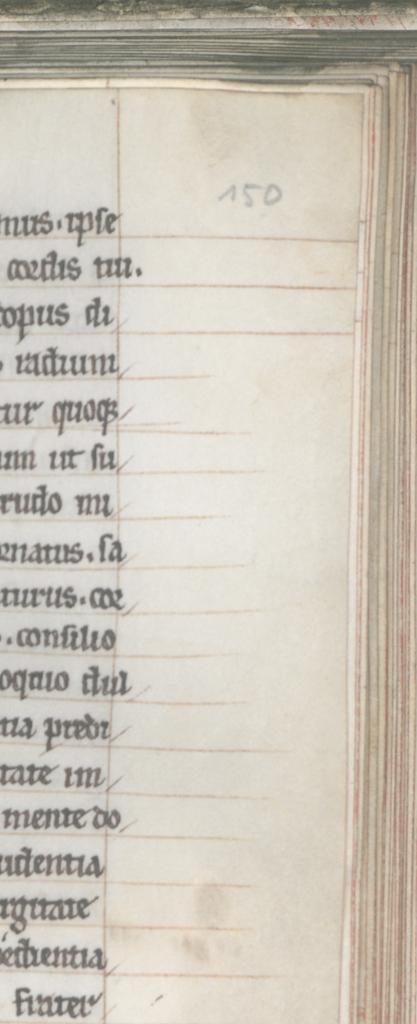 150
mus. ipse
cordis tui.
copus di
radium
tur quoq;
um ut su
rudo mi
ornatus. sa
aturus. cor
. consilio
oquio dul
tia predi
tate im
mente do
udentia
rgitate
bedientia
frater